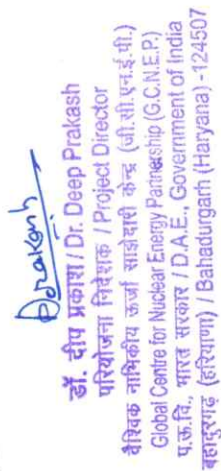 DPrakash
डॉ. दीप प्रकाश / Dr. Deep Prakash
परियोजना निदेशक / Project Director
वैश्विक नाभिकीय ऊर्जा साझेदारी केन्द्र (जी.सी.एन.ई.पी.)
Global Centre for Nuclear Energy Partnership (G.C.N.E.P.)
प.ऊ.वि., भारत सरकार / D.A.E., Government of India
बहादुरगढ़ (हरियाणा) / Bahadurgarh (Haryana) - 124507